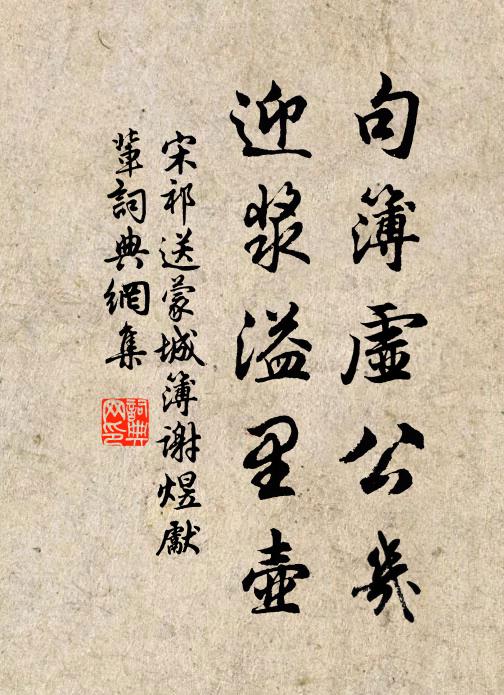 句簿虛公幾
迎漿溢里壺
宋祁送蒙城簿謝煜獻
葷詞典網集
詞典网印